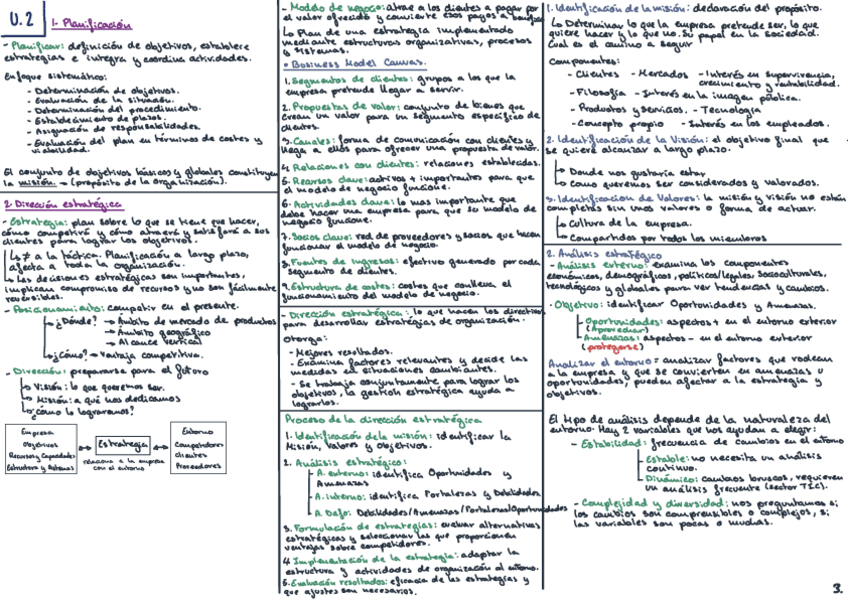 U.2
1. Planificación
- Planificar: definición de objetivos, establece
estrategias e integra y coordina actividades.
Enfoque sistemático:
- Determinación de objetivos.
- Evaluación de la situación.
- Determinación del procedimiento.
- Establecimiento de plazos.
- Asignación de responsabilidades.
- Evaluación del plan en términos de costes y
viabilidad.
El conjunto de objetivos básicos y globales constituyen
la misión → (propósito de la organización).
2. Dirección estratégica
- Estrategia: plan sobre lo que se tiene que hacer,
cómo competirá y cómo atraerá y satisfará a sus
clientes para lograr los objetivos.
↳ ≠ a la táctica. Planificación a largo plazo,
afecta a toda la organización.
↳ Las decisiones estratégicas son importantes,
implican compromiso de recursos y no son fácilmente
reversibles.
- Posicionamiento: competir en el presente.
¿Dónde? → Ámbito de mercado de productos
→ Ámbito geográfico
→ Alcance vertical
¿Cómo? → Ventaja competitiva.
- Dirección: prepararse para el futuro
↳ Visión: lo que queremos ser.
↳ Misión: a qué nos dedicamos
↳ ¿Cómo lo logramos?
Empresa
Objetivos
Recursos y Capacidades
Estructura y Sistemas
Estrategia
relaciona a la empresa
con el entorno
Entorno
Competidores
Clientes
Proveedores
- Modelo de negocio: atrae a los clientes a pagar por
el valor ofrecido y convierte esos pagos a beneficio
↳ Plan de una estrategia implementado
mediante estructuras organizativas, procesos
y sistemas.
• Business Model Canvas.
1. Segmentos de clientes: grupos a los que la
empresa pretende llegar a servir.
2. Propuestas de valor: conjunto de bienes que
crean un valor para un segmento específico de
clientes.
3. Canales: forma de comunicación con clientes y
llega a ellos para ofrecer una propuesta de valor.
4. Relaciones con clientes: relaciones establecidas.
5. Recursos clave: activos + importantes para que
el modelo de negocio funcione.
6. Actividades clave: lo más importante que
debe hacer una empresa para que su modelo de
negocio funcione.
7. Socios clave: red de proveedores y socios que hacen
funcionar el modelo de negocio.
8. Fuentes de ingresos: efectivo generado por cada
segmento de clientes.
9. Estructura de costes: costes que conlleva el
funcionamiento del modelo de negocio.
- Dirección estratégica: lo que hacen los directivos
para desarrollar estrategias de organización.
Otorga:
- Mejores resultados.
- Examina factores relevantes y decide las
medidas en situaciones cambiantes.
- Se trabaja conjuntamente para lograr los
objetivos, la gestión estratégica ayuda a
lograrlos.
Proceso de la dirección estratégica
1. Identificación de la misión: identificar la
Misión, Valores y Objetivos.
2. Análisis estratégico:
A. externo: identifica Oportunidades y
Amenazas
A. interno: identifica Fortalezas y Debilidades.
A. Dafo: Debilidades/Amenazas/Fortalezas/Oportunidades
3. Formulación de estrategias: evaluar alternativas
estratégicas y seleccionar las que proporcionen
ventajas sobre competidores.
4. Implementación de la estrategia: adaptar la
estructura y actividades de organización al entorno.
5. Evaluación resultados: eficacia de las estrategias y
que ajustes son necesarios.
1. Identificación de la misión: declaración del propósito.
↳ Determinar lo que la empresa pretende ser, lo que
quiere hacer y lo que no. Su papel en la sociedad.
Cual es el camino a seguir
Componentes:
- Clientes - Mercados - Interés en supervivencia,
crecimiento y rentabilidad.
- Filosofía - Interés en la imagen pública.
- Productos y servicios. - Tecnología
- Concepto propio - Interés en los empleados.
2. Identificación de la Visión: el objetivo final que
se quiere alcanzar a largo plazo.
↳ Donde nos gustaría estar
↳ Como queremos ser considerados y valorados.
3. Identificación de Valores: la misión y visión no están
completas sin unos valores o forma de actuar.
↳ Cultura de la empresa.
↳ Compartidos por todos los miembros
2. Análisis estratégico
- Análisis externo: examina los componentes
económicos, demográficos, políticos/legales, socioculturales,
tecnológicos y globales para ver tendencias y cambios.
· Objetivo: identificar Oportunidades y Amenazas.
Oportunidades: aspectos + en el entorno exterior
(Aprovechar)
Amenazas: aspectos - en el entorno exterior
(protegerse)
Analizar el entorno = analizar factores que rodean
a la empresa y que se convierten en amenazas u
oportunidades, pueden afectar a la estrategia y
objetivos.
El tipo de análisis depende de la naturaleza del
entorno. Hay 2 variables que nos ayudan a elegir:
- Estabilidad: frecuencia de cambios en el entorno
Estable: no necesita un análisis
continuo.
Dinámico: cambios bruscos, requieren
un análisis frecuente (sector TIC).
- Complejidad y diversidad: nos preguntamos si
los cambios son comprensibles o complejos, si
las variables son pocas o muchas.
3.